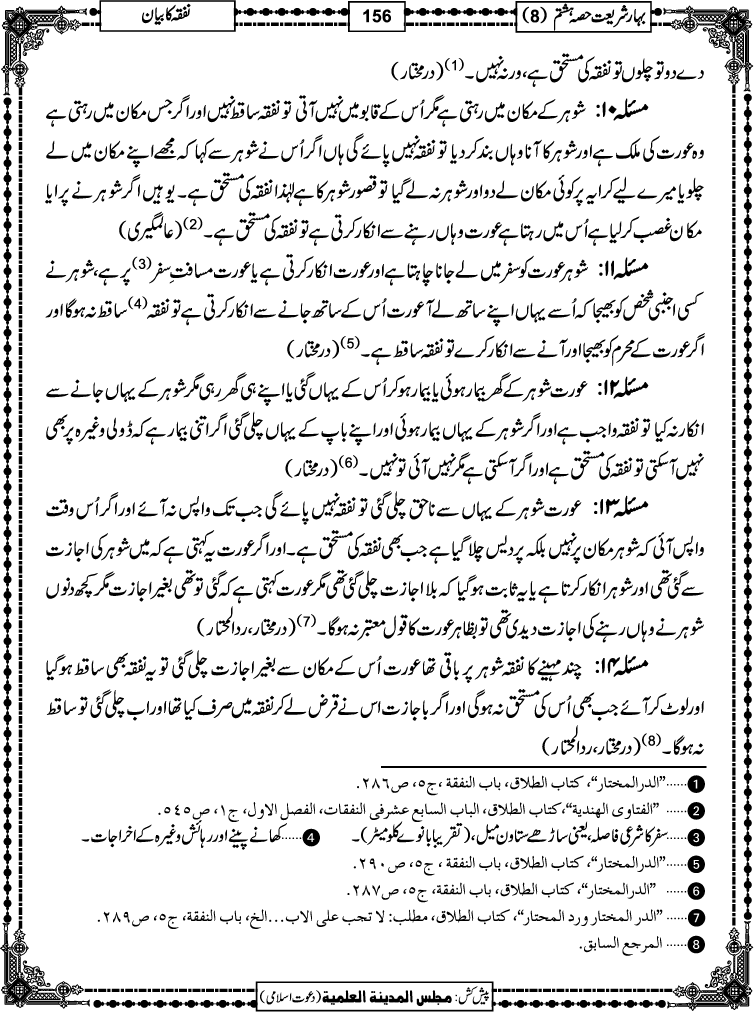 بہار شریعت حصہ ہشتم (8)
156
نفقہ کا بیان
دے دو تو چلوں تو نفقہ کی مستحق ہے، ورنہ نہیں۔(1) (درمختار)
مسئلہ ۱۰: شوہر کے مکان میں رہتی ہے مگر اُس کے قابو میں نہیں آتی تو نفقہ ساقط نہیں اور اگر جس مکان میں رہتی ہے
وہ عورت کی ملک ہے اور شوہر کا آنا وہاں بند کر دیا تو نفقہ نہیں پائے گی ہاں اگر اُس نے شوہر سے کہا کہ مجھے اپنے مکان میں لے
چلو یا میرے لیے کرایہ پر کوئی مکان لے دو اور شوہر نہ لے گیا تو قصور شوہر کا ہے لہٰذا نفقہ کی مستحق ہے۔ یوہیں اگر شوہر نے پرایا
مکان غصب کر لیا ہے اُس میں رہتا ہے عورت وہاں رہنے سے انکار کرتی ہے تو نفقہ کی مستحق ہے۔(2) (عالمگیری)
مسئلہ ۱۱: شوہر عورت کو سفر میں لے جانا چاہتا ہے اور عورت انکار کرتی ہے یا عورت مسافتِ سفر(3) پر ہے، شوہر نے
کسی اجنبی شخص کو بھیجا کہ اُسے یہاں اپنے ساتھ لے آ عورت اُس کے ساتھ جانے سے انکار کرتی ہے تو نفقہ(4) ساقط نہ ہوگا اور
اگر عورت کے محرم کو بھیجا اور آنے سے انکار کرے تو نفقہ ساقط ہے۔(5) (درمختار)
مسئلہ ۱۲: عورت شوہر کے گھر بیمار ہوئی یا بیمار ہو کر اُس کے یہاں گئی یا اپنے ہی گھر رہی مگر شوہر کے یہاں جانے سے
انکار نہ کیا تو نفقہ واجب ہے اور اگر شوہر کے یہاں بیمار ہوئی اور اپنے باپ کے یہاں چلی گئی اگر اتنی بیمار ہے کہ ڈولی وغیرہ پر بھی
نہیں آسکتی تو نفقہ کی مستحق ہے اور اگر آسکتی ہے مگر نہیں آئی تو نہیں۔(6) (درمختار)
مسئلہ ۱۳: عورت شوہر کے یہاں سے ناحق چلی گئی تو نفقہ نہیں پائے گی جب تک واپس نہ آئے اور اگر اُس وقت
واپس آئی کہ شوہر مکان پر نہیں بلکہ پردیس چلا گیا ہے جب بھی نفقہ کی مستحق ہے۔ اور اگر عورت یہ کہتی ہے کہ میں شوہر کی اجازت
سے گئی تھی اور شوہر انکار کرتا ہے یا یہ ثابت ہوگیا کہ بلا اجازت چلی گئی تھی مگر عورت کہتی ہے کہ گئی تو تھی بغیر اجازت مگر کچھ دنوں
شوہر نے وہاں رہنے کی اجازت دیدی تھی تو بظاہر عورت کا قول معتبر نہ ہوگا۔(7) (درمختار، ردالمحتار)
مسئلہ ۱۴: چند مہینے کا نفقہ شوہر پر باقی تھا عورت اُس کے مکان سے بغیر اجازت چلی گئی تو یہ نفقہ بھی ساقط ہوگیا
اور لوٹ کر آئے جب بھی اُس کی مستحق نہ ہوگی اور اگر باجازت اس نے قرض لے کر نفقہ میں صرف کیا تھا اور اب چلی گئی تو ساقط
نہ ہوگا۔(8) (درمختار، ردالمحتار)
1 ......"الدرالمختار"، كتاب الطلاق، باب النفقة، ج٥، ص٢٨٦.
2 ...... "الفتاوى الهندية"، كتاب الطلاق، الباب السابع عشرفى النفقات، الفصل الاول، ج١، ص٥٤٥.
3 ......سفر کا شرعی فاصلہ، یعنی ساڑھے ستاون میل، (تقریباً بانوے کلومیٹر)۔ 4 ......کھانے پینے اور رہائش وغیرہ کے اخراجات۔
5 ......"الدرالمختار"، كتاب الطلاق، باب النفقة، ج٥، ص٢٩٠.
6 ...... "الدرالمختار"، كتاب الطلاق، باب النفقة، ج٥، ص٢٨٧.
7 ......"الدر المختار ورد المحتار"، كتاب الطلاق، مطلب: لا تجب على الاب...الخ، باب النفقة، ج٥، ص٢٨٩.
8 ...... المرجع السابق.
پیش کش: مجلس المدینة العلمیة (دعوت اسلامی)